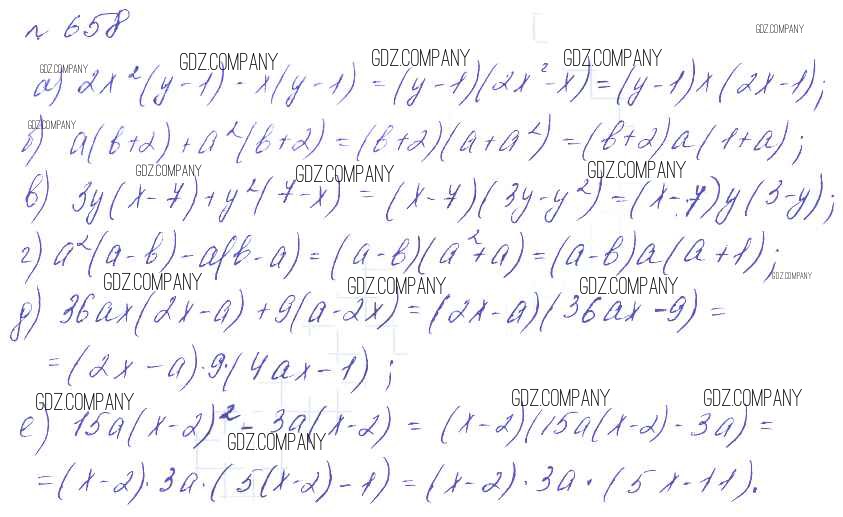 № 658
GDZ.COMPANY
GDZ.COMPANY GDZ.COMPANY GDZ.COMPANY GDZ.COMPANY
а) 2x²(y-1) - x(y-1) = (y-1)(2x²-x) = (y-1)x(2x-1);
GDZ.COMPANY
б) a(b+2) + a²(b+2) = (b+2)(a+a²) = (b+2)a(1+a);
GDZ.COMPANY GDZ.COMPANY GDZ.COMPANY
в) 3y(x-7) + y²(7-x) = (x-7)(3y-y²) = (x-7)y(3-y);
г) a²(a-b) - a(b-a) = (a-b)(a²+a) = (a-b)a(a+1);
GDZ.COMPANY GDZ.COMPANY GDZ.COMPANY GDZ.COMPANY
д) 36ax(2x-a) + 9(a-2x) = (2x-a)(36ax-9) =
= (2x-a)·9·(4ax-1);
GDZ.COMPANY GDZ.COMPANY GDZ.COMPANY
е) 15a(x-2)² - 3a(x-2) = (x-2)(15a(x-2)-3a) =
GDZ.COMPANY
= (x-2)·3a·(5(x-2)-1) = (x-2)·3a·(5x-11).